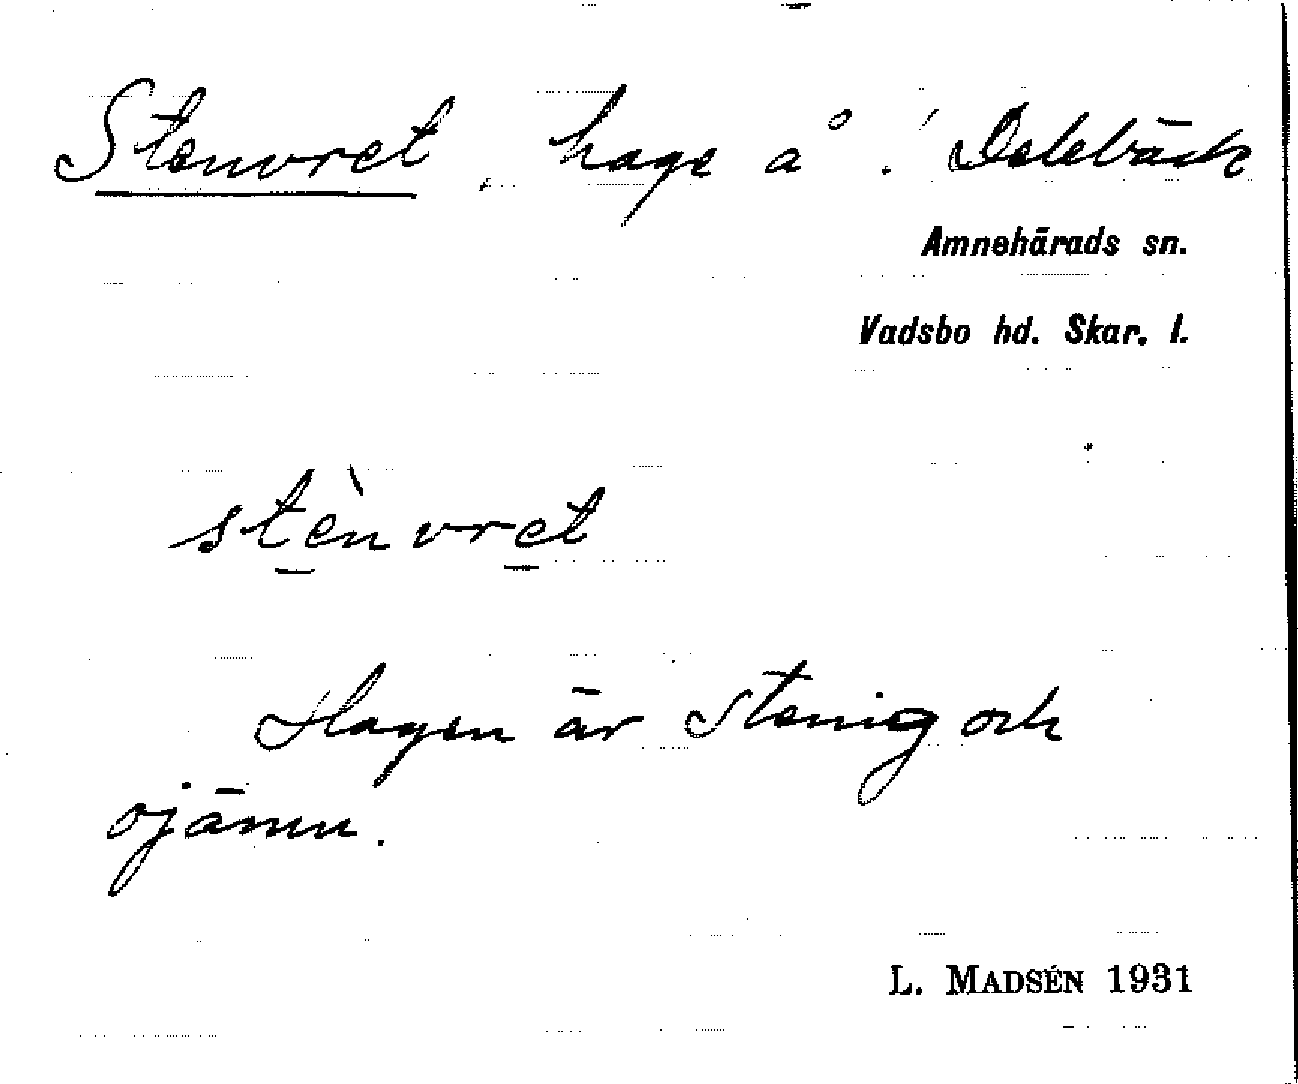 Stenvret, hage å! Delebäck
Amnehärads sn.
Vadsbo hd. Skar. l.
stènvret
Hagen är stenig och
ojämn.
L. MADSÉN 1931